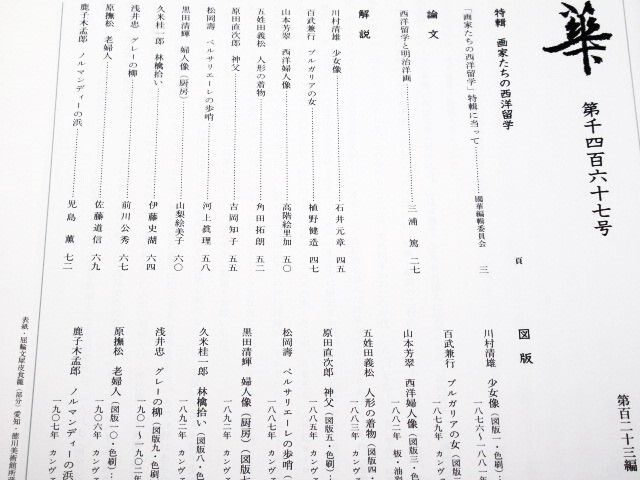 華
第千四百六十七号
第百二十三編
特輯 画家たちの西洋留学
頁
「画家たちの西洋留学」特輯に当って……國華編輯委員会 三
論文
西洋留学と明治洋画……三浦 篤 二七
解説
川村清雄 少女像……石井元章 四五
百武兼行 ブルガリアの女……植野健造 四七
山本芳翠 西洋婦人像……高階絵里加 五〇
五姓田義松 人形の着物……角田拓朗 五二
原田直次郎 神父……吉岡知子 五五
松岡壽 ベルサリエーレの歩哨……河上眞理 五八
黒田清輝 婦人像(厨房)……山梨絵美子 六〇
久米桂一郎 林檎拾い……伊藤史湖 六四
浅井忠 グレーの柳……前川公秀 六七
原撫松 老婦人……佐藤道信 六九
鹿子木孟郎 ノルマンディーの浜……児島 薫 七二
図版
川村清雄 少女像(図版
一八七六〜一八八一
百武兼行 ブルガリアの女(
一八七九年 カンヴ
山本芳翠 西洋婦人像(図版三・色
一八八二年 板・油彩
五姓田義松 人形の着物(図版四・
一八八三年 カンヴ
原田直次郎 神父(図版五・色刷)
一八八五年 カンヴ
松岡壽 ベルサリエーレの歩哨(
一八八七年 カンヴ
黒田清輝 婦人像(厨房)(図版七
一八九二年 カンヴ
久米桂一郎 林檎拾い(図版八・色
一八九二年 カンヴ
浅井忠 グレーの柳(図版九・色刷
一九〇一〜一九〇二年 カ
原撫松 老婦人(図版一〇・色刷)…
一九〇六年 カンヴァ
鹿子木孟郎 ノルマンディーの浜
一九〇七年 カンヴァ
表紙・屈輪文犀皮食籠(部分)愛知・徳川美術館所